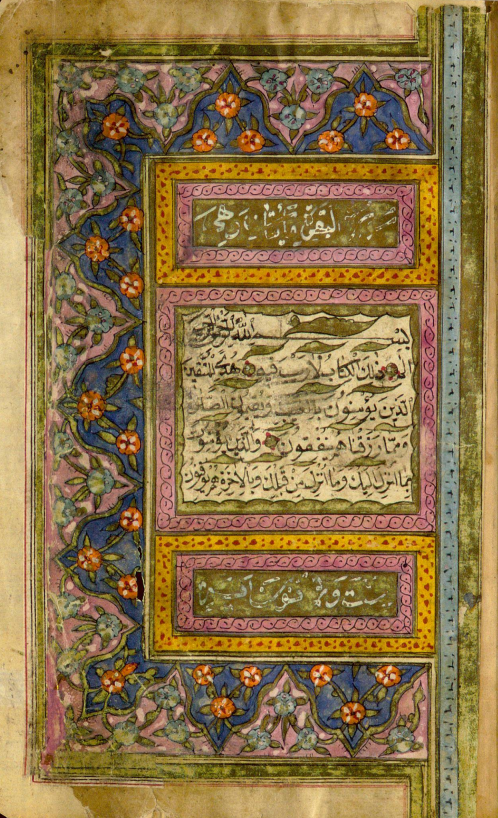 سورة البقرة مائتان وهي
بسم الله الرحمن الرحيم
الم ذلك الكتاب لا ريب فيه هدى للمتقين
الذين يؤمنون بالغيب ويقيمون الصلوة
ومما رزقناهم ينفقون والذين يؤمنون
بما انزل اليك وما انزل من قبلك وبالاخرة هم يوقنون
ست وثمانون آية